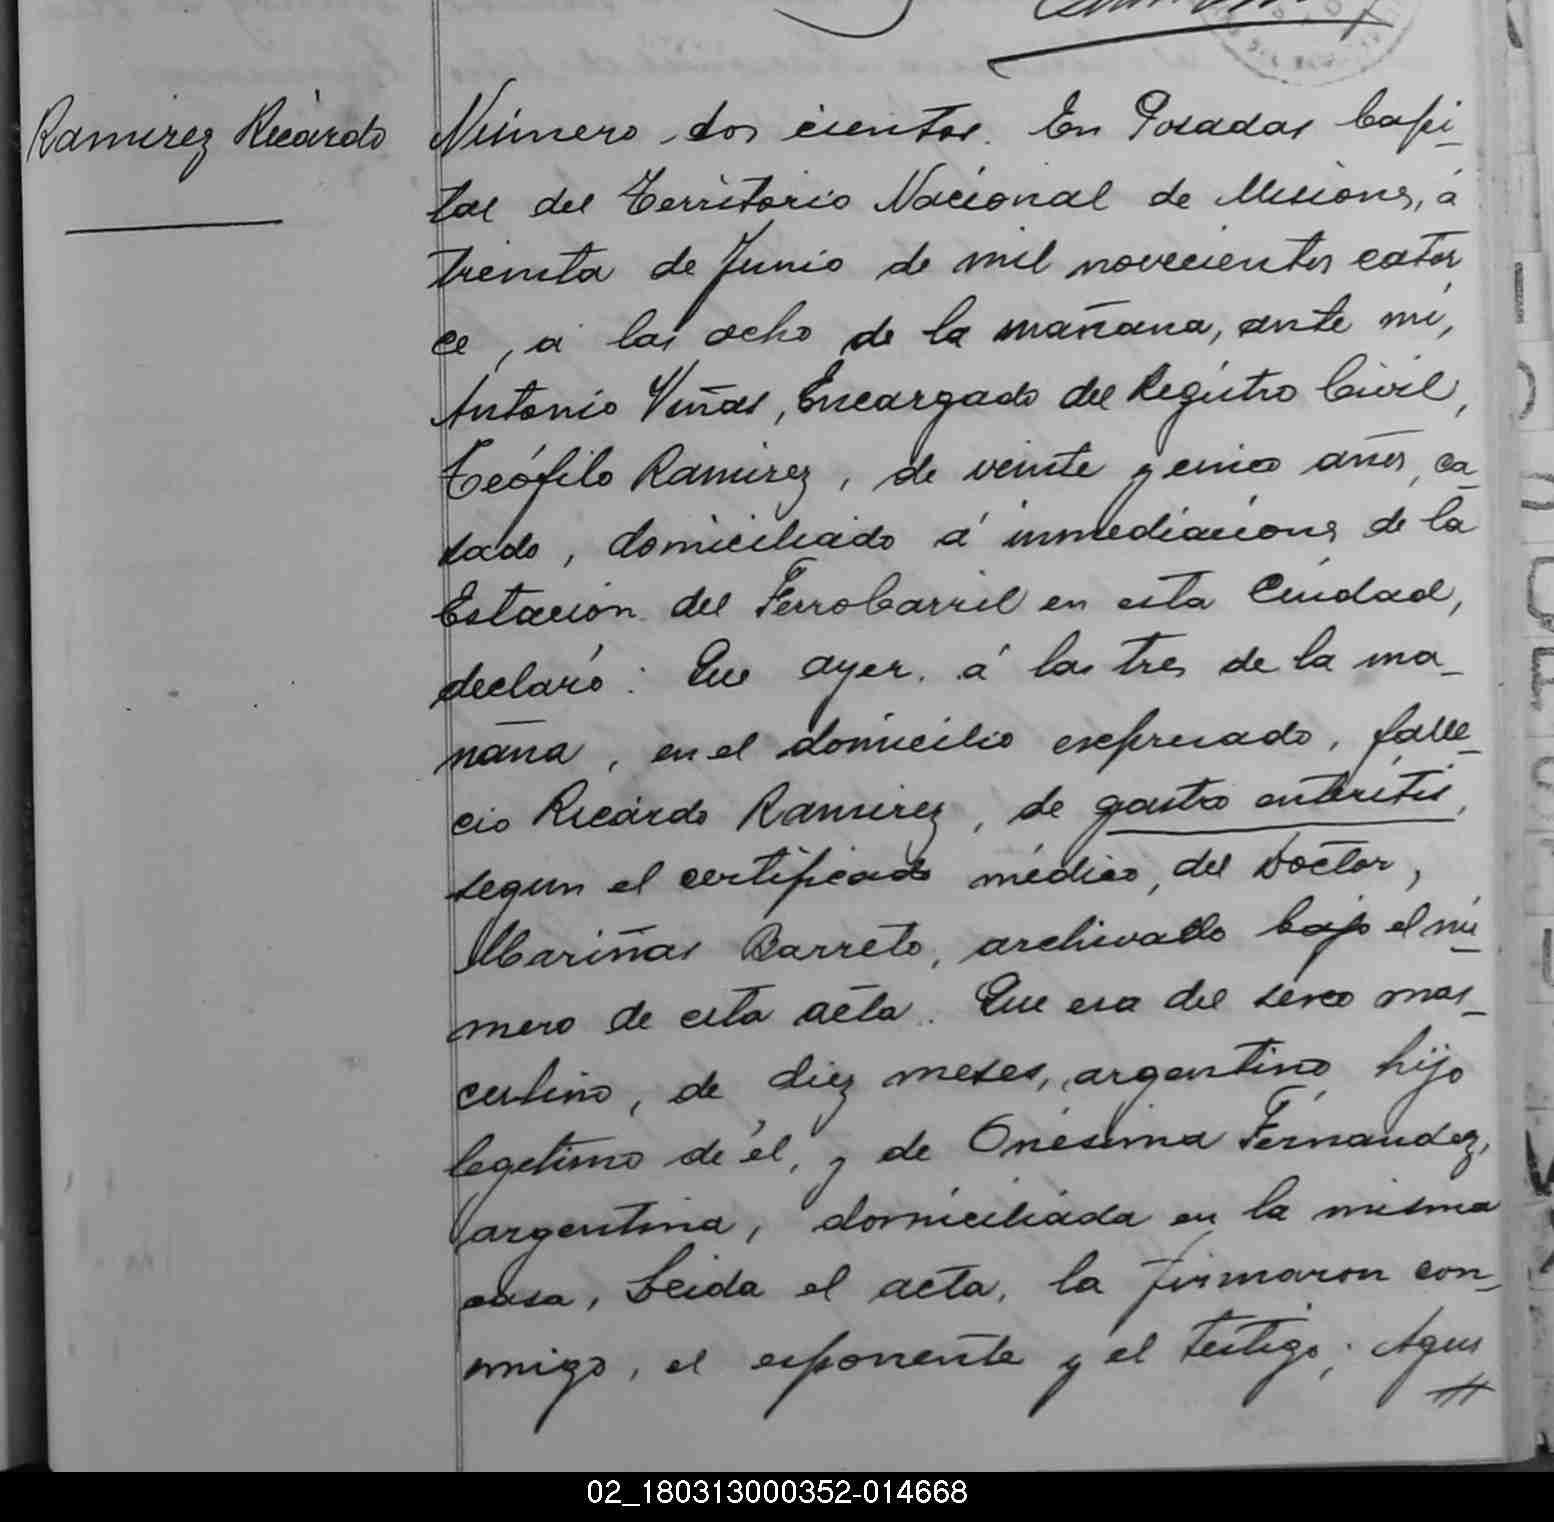 Ramirez Ricardo
Número dos cientos. En Posadas Capi-
tal del Territorio Nacional de Misiones, á
treinta de Junio de mil novecientos cator
ce, á las ocho de la mañana, ante mi,
Antonio Viñas, Encargado del Registro Civil,
Teófilo Ramirez, de veinte y cinco años, ca-
sado, domiciliado á inmediaciones de la
Estacion del FerroCarril en esta Ciudad,
declaró: Que ayer, á las tres de la ma-
ñana, en el domicilio expresado, falle-
cio Ricardo Ramirez, de gastro enteritis,
segun el certificado médico, del Doctor,
Mariñas Barreto, archivado bajo el nú-
mero de esta acta. Que era del sexo mas-
culino, de diez meses, argentino, hijo
legitimo de él, y de Onésima Fernandez,
argentina, domiciliada en la misma
casa, Leida el acta, la firmaron con-
migo, el exponente y el testigo; Agus
02_180313000352-014668